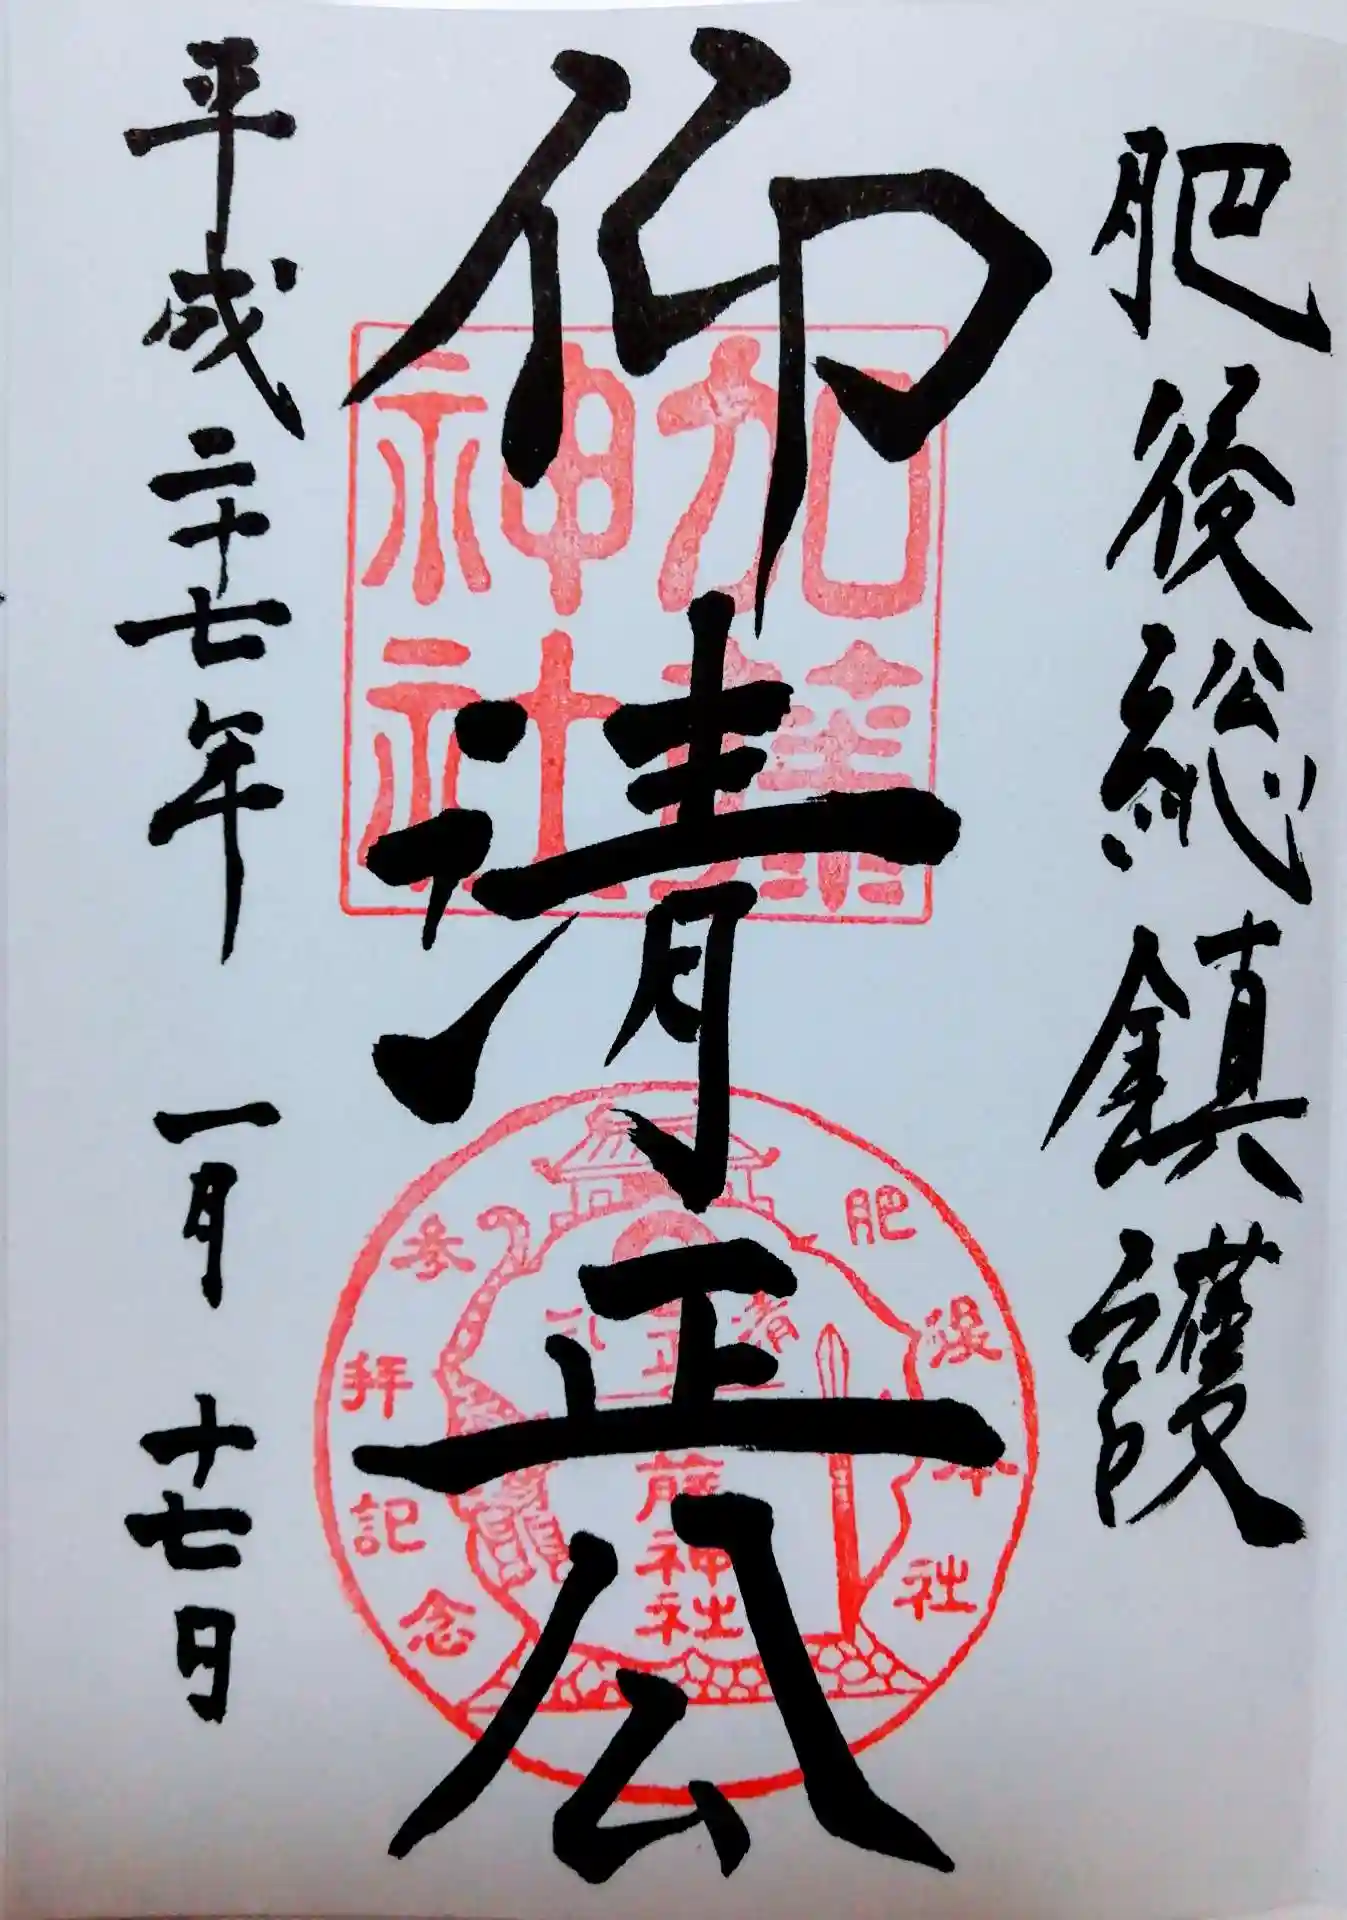 肥後総鎮護
仰清正公
平成二十七年 一月 十七日
加藤
神社
肥後本社
参拝記念
藤神社